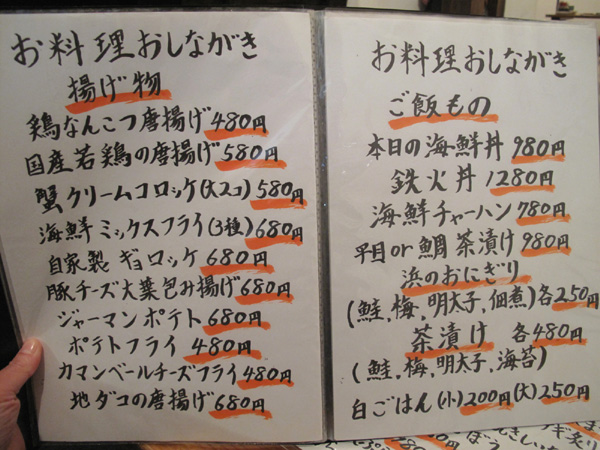 お料理おしながき
揚げ物
鶏なんこつ唐揚げ 480円
国産若鶏の唐揚げ 580円
蟹クリームコロッケ(大2コ) 580円
海鮮ミックスフライ(3種) 680円
自家製ギョロッケ 680円
豚チーズ大葉包み揚げ 680円
ジャーマンポテト 680円
ポテトフライ 480円
カマンベールチーズフライ 480円
地ダコの唐揚げ 680円
お料理おしながき
ご飯もの
本日の海鮮丼 980円
鉄火丼 1280円
海鮮チャーハン 780円
平目or鯛茶漬け 980円
浜のおにぎり
(鮭,梅,明太子,佃煮)各250円
茶漬け 各480円
(鮭,梅,明太子,海苔)
白ごはん(小)200円(大)250円